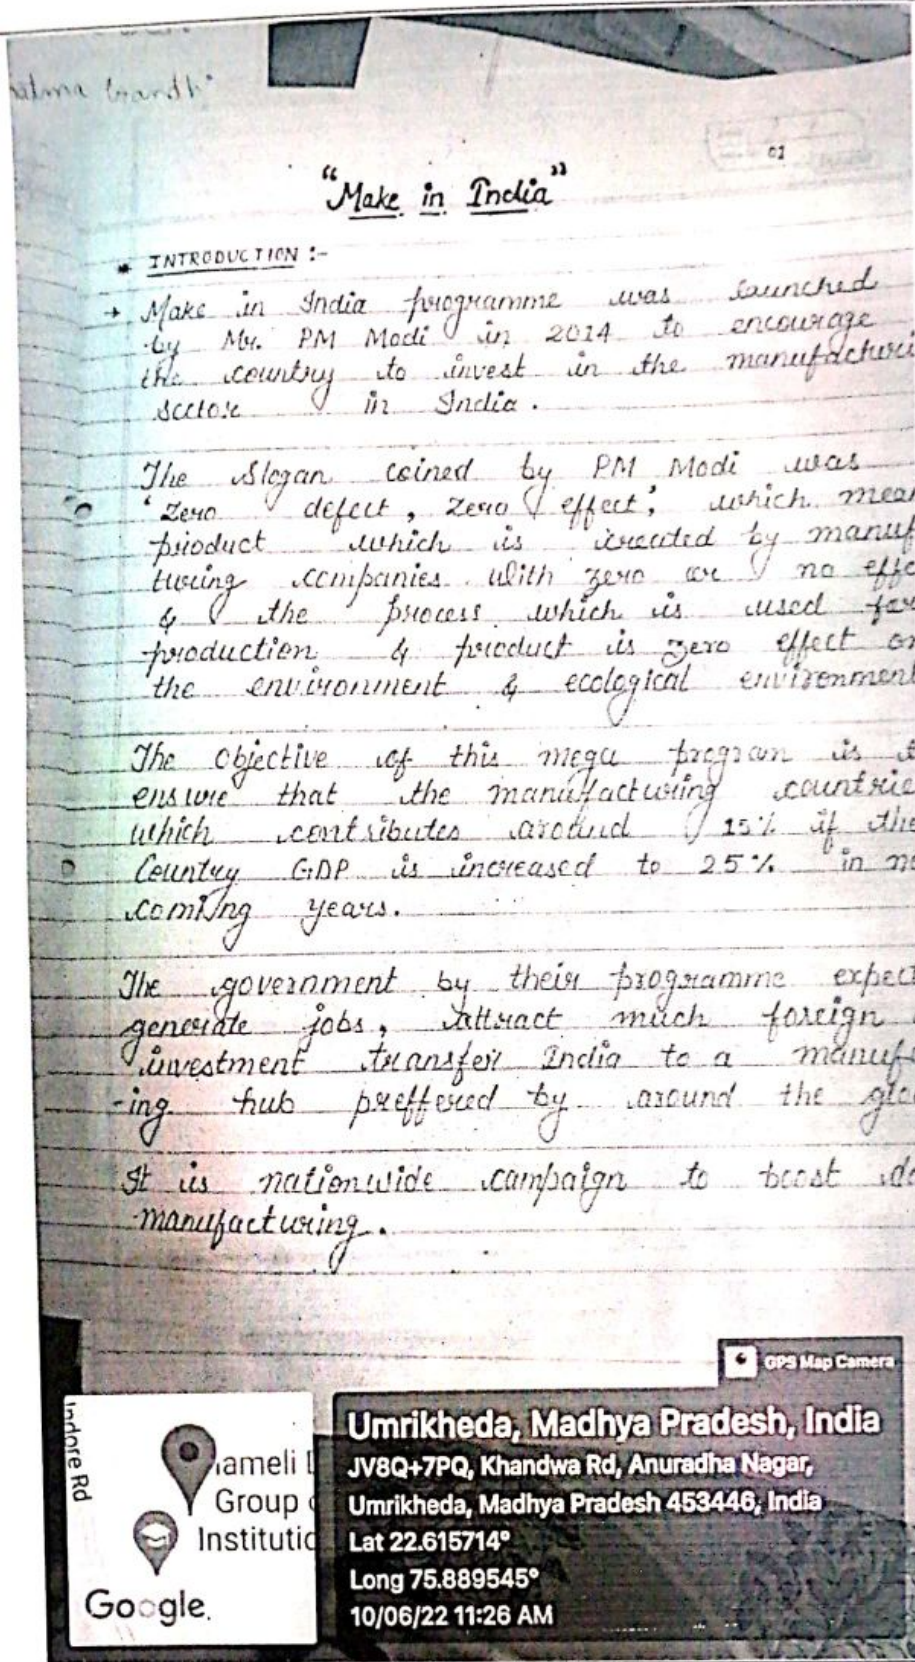 Gandhi
01
"Make in India"
* INTRODUCTION :-
→ Make in India programme was launched
by Mr. PM Modi in 2014 to encourage
the country to invest in the manufacturi
sector in India.
The Slogan coined by PM Modi was
'Zero defect, Zero effect', which mean
product which is created by manuf
turing companies with zero or no effe
& the process which is used for
production & product is zero effect on
the environment & ecological environment
The objective of this mega program is t
ensure that the manufacturing countrie
which contributes around 15% if the
Country GDP is increased to 25% in
coming years.
The government by their programme expect
generate jobs, attract much foreign
investment transfer India to a manuf
-ing hub preffered by around the glo
It is nationwide campaign to boost do
manufacturing.
GPS Map Camera
Indore Rd
ameli D
Group
Institutio
Google
Umrikheda, Madhya Pradesh, India
JV8Q+7PQ, Khandwa Rd, Anuradha Nagar,
Umrikheda, Madhya Pradesh 453446, India
Lat 22.615714°
Long 75.889545°
10/06/22 11:26 AM